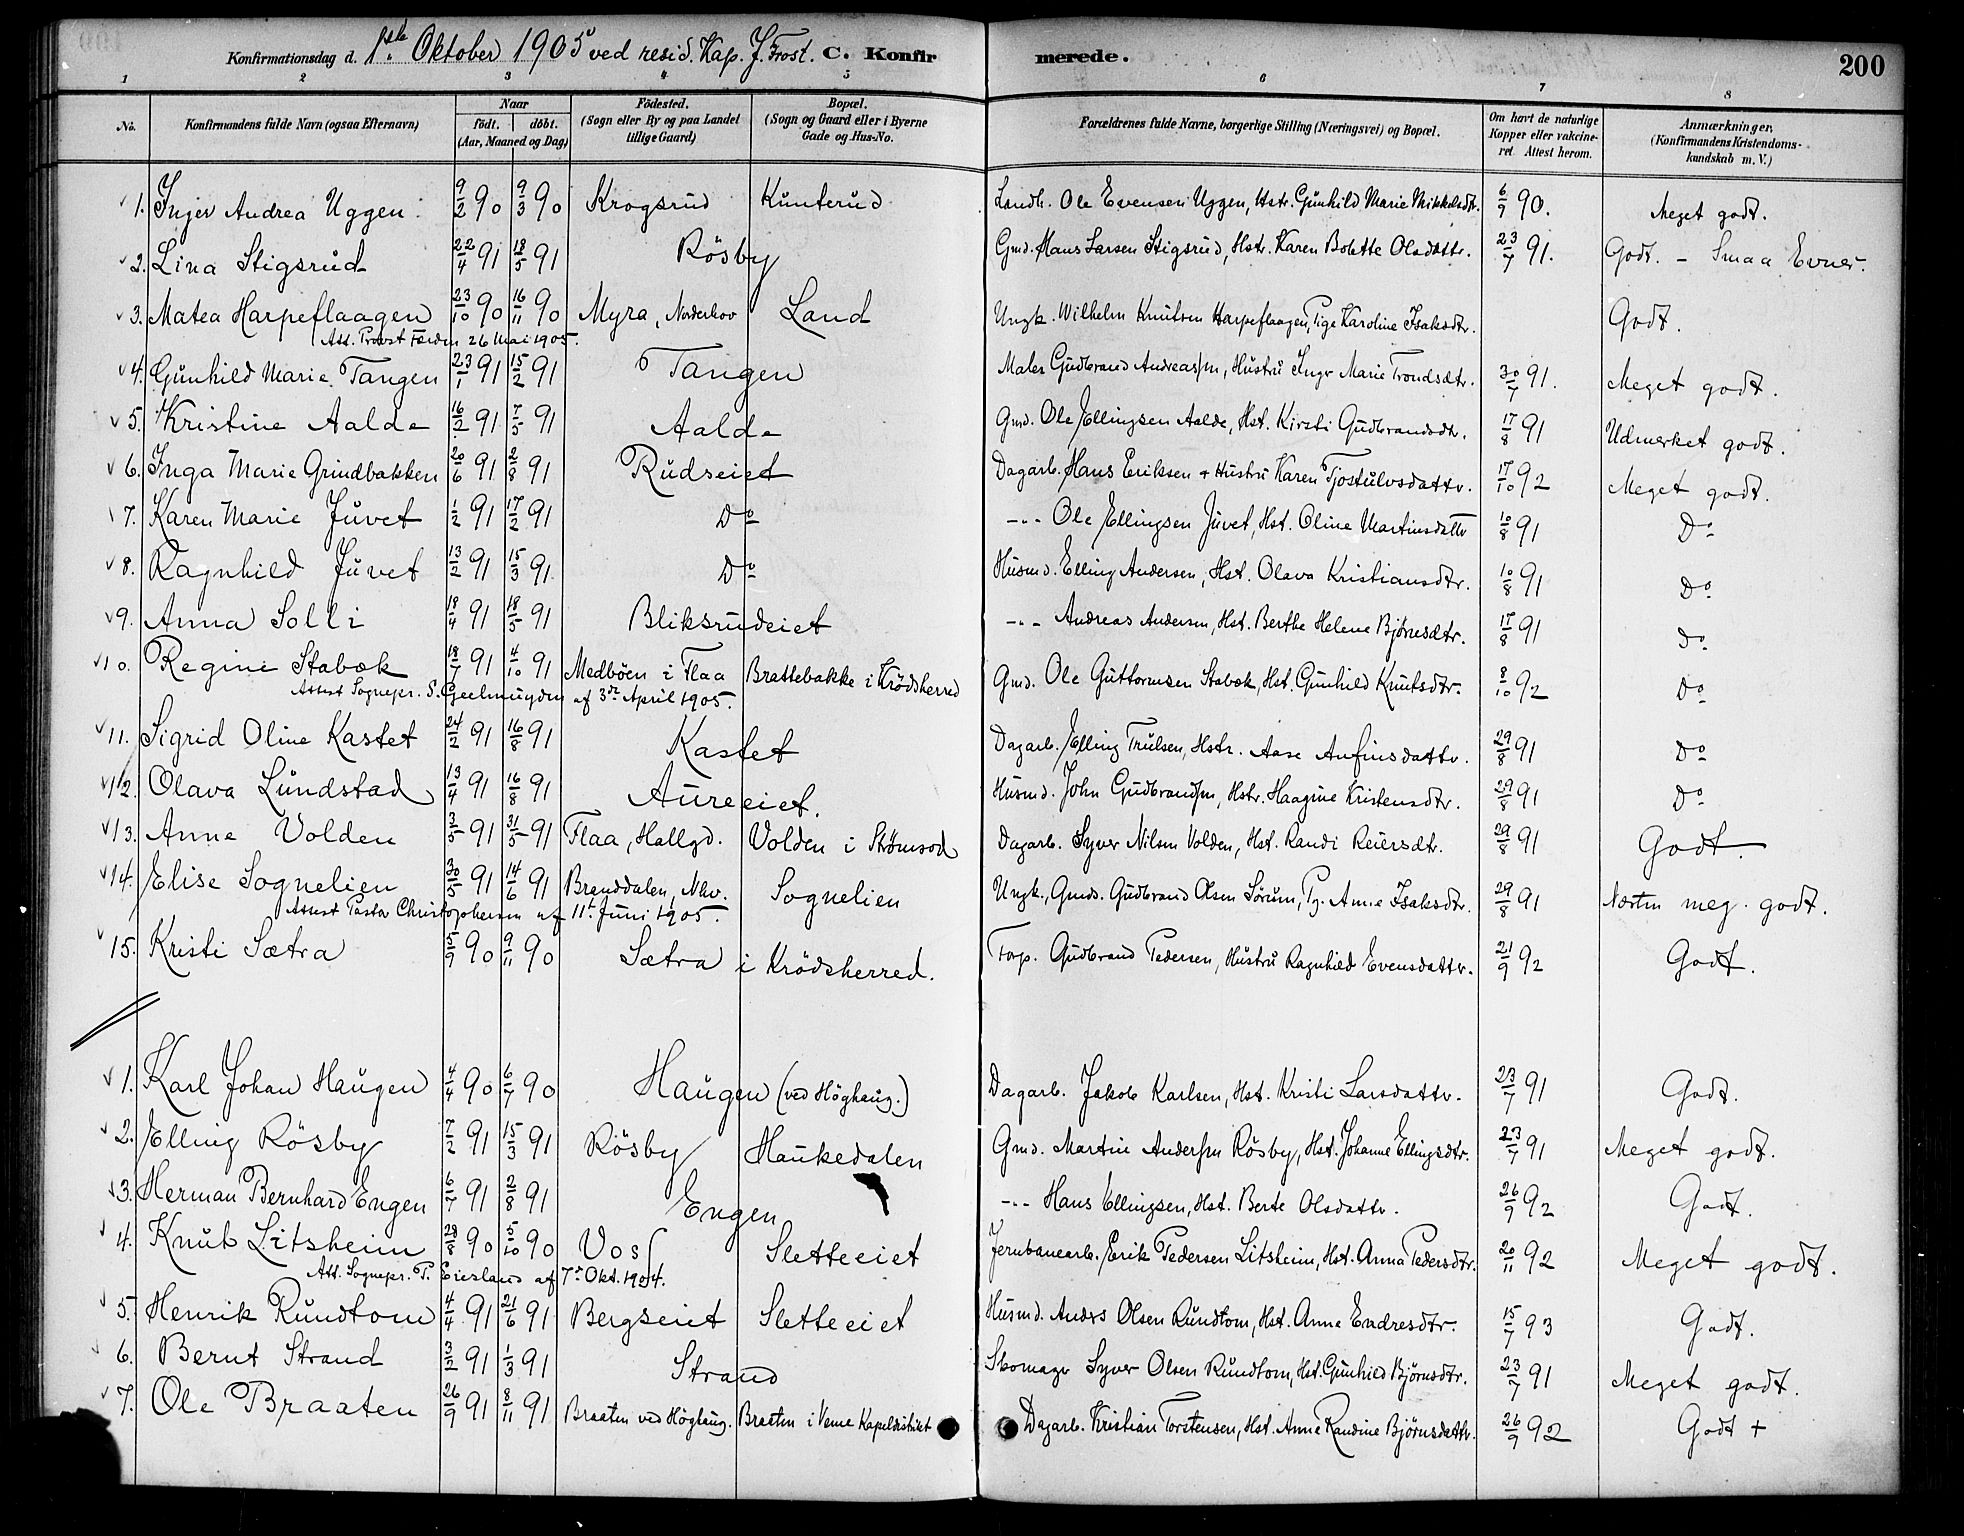 Konfirmationsdag d. 1ste Oktober 1905 ved resid. Kap. J. Frost. C. Konfirmerede. 200
1 2 3 4 5 6 7 8
No. Konfirmandens fulde Navn (ogsaa Efternavn) Naar födt. döbt. (Aar, Maaned og Dag) Födested. (Sogn eller By og paa Landet tillige Gaard) Bopæl. (Sogn og Gaard eller i Byerne Gade og Hus-No. Forældrenes fulde Navne, borgerlige Stilling (Næringsvei) og Bopæl. Om havt de naturlige Kopper eller vakcineret Attest herom. Anmærkninger. (Konfirmandens Kristendomskundskab m. V.)
1. Injer Andrea Uggen 9/2 90 9/3 90 Krogsrud Kunterud Landh. Ole Evensen Uggen, Hstr. Gunhild Marie Mikkelsdtr. 6/9 90. Meget godt.
2. Lina Stigsrud 22/4 91 18/5 91 Rösby Gmd. Hans Larsen Stigsrud, Hstr. Karen Bolette Olsdattr. 23/7 91. Godt. - Smaa Evner.
3. Matea Harpeflaagen 23/10 90 16/11 90 Myra, Norderhov Land Ungk. Wilhelm Knutsen Harpeflaagen, Pige Karoline Isaksdtr. Godt.
Att. Provst Færden 26 Mai 1905.
4. Gunhild Marie Tangen 23/1 91 15/2 91 Tangen Maler Gudbrand Andreassen, Hustru Inger Marie Trondsdtr. 30/7 91. Meget godt.
5. Kristine Aalde 16/2 91 7/5 91 Aalde Gmd. Ole Ellingsen Aalde, Hst. Kirsti Gudbrandsdtr. 17/8 91 Udmerket godt.
6. Inga Marie Grindbakken 20/6 91 2/8 91 Rudseiet Dagarb. Hans Eriksen + Hustru Karen Tjostulvsdattr. 17/10 92 Meget godt.
7. Karen Marie Juvet 1/2 91 17/2 91 Do -"- Ole Ellingsen Juvet, Hst. Oline Martinsdattr 10/8 91 Do
8. Ragnhild Juvet 13/2 91 15/3 91 Do Husmd. Elling Andersen, Hst. Olava Kristiansdtr. 10/8 91 Do
9. Anna Solli 18/4 91 18/5 91 Bliksrudeiet -"- Andreas Andersen, Hst. Berthe Helene Bjørnsdtr. 17/8 91 Do
10. Regine Stabæk 18/7 91 4/10 91 Medböen i Flaa Brattebakke i Krödsherred Gmd. Ole Guttormsen Stabæk, Hst. Gunhild Knutsdtr. 8/10 92 Do
Attest Sognepr. S. Geelmuyden af 3de April 1905.
11. Sigrid Oline Kastet 24/2 91 16/8 91 Kastet Dagarb. Elling Trulsen, Hstr. Aase Anfinsdattr. 29/8 91 Do
12. Olava Lundstad 13/4 91 16/8 91 Aureeiet. Husmd. John Gudbrandsen, Hstr. Haagine Kristensdtr. 29/8 91 Do
13. Anne Volden 3/5 91 31/5 91 Flaa, Hallgd. Volden i Strømsod Dagarb. Syver Nilsen Volden, Hst. Randi Reiersdtr. 29/8 91 Godt.
14. Elise Sognelien 30/5 91 14/6 91 Brenddalen, Nhv. Sognelien Ungk., Gmds. Gudbrand Olsen Sørum, Pg. Anne Isaksdtr. 29/8 91 Næsten meg. godt.
Attest Pastor Christophersen af 11te Juni 1905.
15. Kristi Sætra 5/9 90 9/11 90 Sætra i Krödsherred. Torp. Gudbrand Pedersen, Hustru Ragnhild Evensdattr. 21/9 92 Godt.
1. Karl Johan Haugen 4/4 90 6/7 90 Haugen (ved Höghaug.) Dagarb. Jakob Karlsen, Hst. Kristi Larsdattr. 23/7 91 Godt.
2. Elling Rösby 7/2 91 15/3 91 Rösby Haukedalen Gmd. Martin Andersen Rösby, Hst. Johanne Ellingsdtr. 23/7 91 Meget godt.
3. Herman Bernhard Engen 6/7 91 2/8 91 Engen -"- Hans Ellingsen, Hst. Berte Olsdattr. 26/9 92 Godt.
4. Knut Litsheim 28/8 90 5/10 90 Voss Sletteeiet Jernbanearb. Erik Pedersen Litsheim, Hst. Anna Pedersdtr. 20/11 92 Meget godt.
Att. Sognepr. T. Eiesland af 7de Okt. 1904.
5. Henrik Rundtom 4/4 91 21/6 91 Bergseiet Sletteeiet Husmd. Anders Olsen Rundtom, Hst. Anne Endresdtr. 15/7 93 Godt.
6. Bernt Strand 3/2 91 1/3 91 Strand Skomager Syver Olsen Rundtom, Hst. Gunhild Bjørnsdtr. 23/7 91 Meget godt.
7. Ole Braaten 26/9 91 8/11 91 Braaten ved Höghaug. Braaten i Veme Kapeldistrikt Dagarb. Kristian Torstensen, Hst. Anne Randine Bjørnsdattr. 26/9 92 Godt +